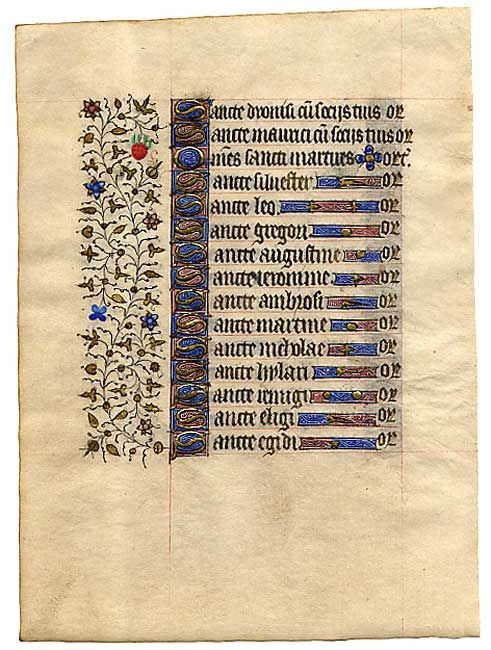 Sancte dyonisi cũ socijs tuis or
Sancte maurici cũ socijs tuis or
Om̃es sancti martires orẽ.
Sancte silvester or
Sancte leo. or
Sancte gregori or
Sancte augustine or
Sancte ieronime or
Sancte ambrosi or
Sancte martine or
Sancte nicholae or
Sancte hylari or
Sancte remigi or
Sancte eligi or
Sancte egidi or